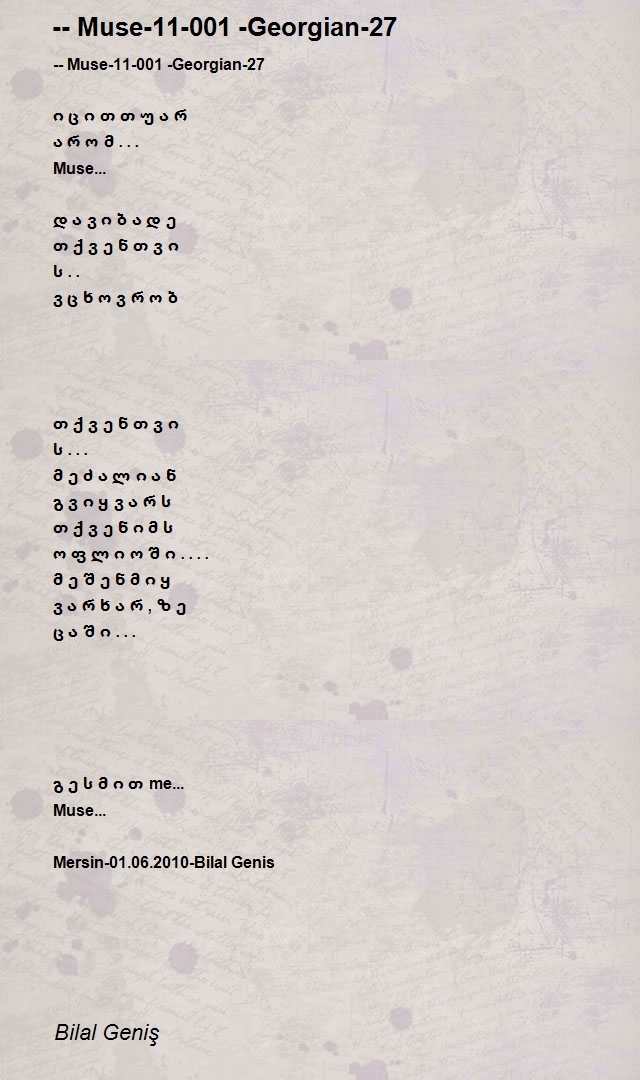 -- Muse-11-001 -Georgian-27
-- Muse-11-001 -Georgian-27
ი ც ი თ თ უ ა რ
ა რ ო მ . . .
Muse...
დ ა ვ ი ბ ა დ ე
თ ქ ვ ე ნ თ ვ ი
ს . .
ვ ც ხ ო ვ რ ო ბ
თ ქ ვ ე ნ თ ვ ი
ს . . .
მ ე ძ ა ლ ი ა ნ
გ ვ ი ყ ვ ა რ ს
თ ქ ვ ე ნ ი მ ს
ო ფ ლ ი ო შ ი . . . .
მ ე შ ე ნ მ ი ყ
ვ ა რ ხ ა რ , ზ ე
ც ა შ ი . . .
გ ე ს მ ი თ me...
Muse...
Mersin-01.06.2010-Bilal Genis
Bilal Geniş